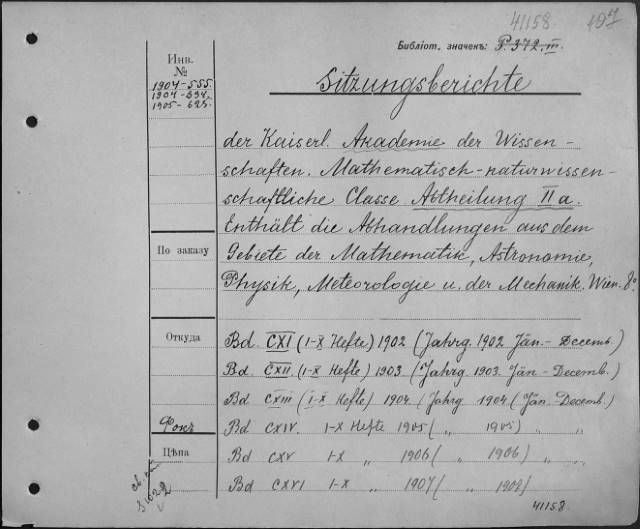 41158. 197
Библіот. значекъ: P. 372. III.
Инв.
№
1904-555.
1904-534.
1905-625.
Sitzungsberichte
der Kaiserl. Akademie der Wissen-
schaften. Mathematisch-naturwissen-
schaftliche Classe Abtheilung II a.
Enthält die Abhandlungen aus dem
По заказу
Gebiete der Mathematik, Astronomie,
Physik, Meteorologie u. der Mechanik. Wien. 8°
Откуда
Bd. CXI (1-X Hefte) 1902 (Jahrg. 1902 Jän.- Decemb.)
Bd. CXII. (1-X Hefte) 1903 (Jahrg. 1903. Jän.-Decemb.)
Bd CXIII (1-X Hefte) 1904 (Jahrg 1904 (Jän. Decemb.)
Bd CXIV. 1-X Hefte 1905 ( „ 1905) „ „
Цѣна
Bd CXV 1-X „ 1906 ( „ 1906) „ „
Bd CXVI 1-X „ 1907 ( „
41158.